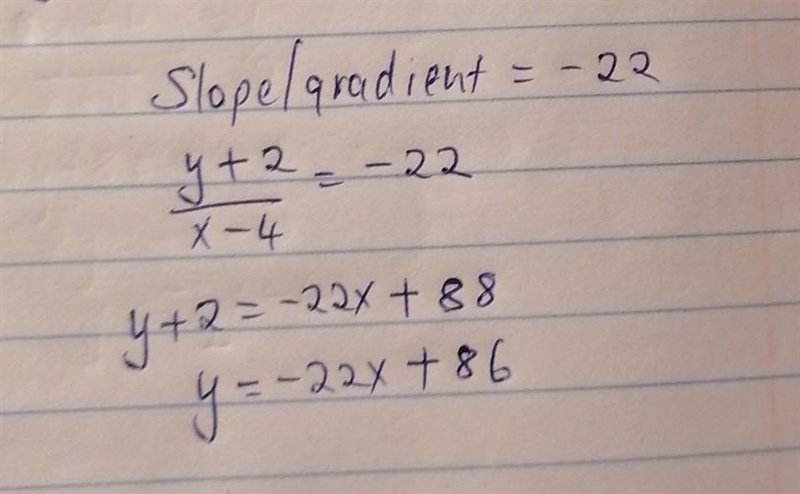 Slope/gradient = -22
y+2/x-4 = -22
y+2 = -22x + 88
y = -22x + 86